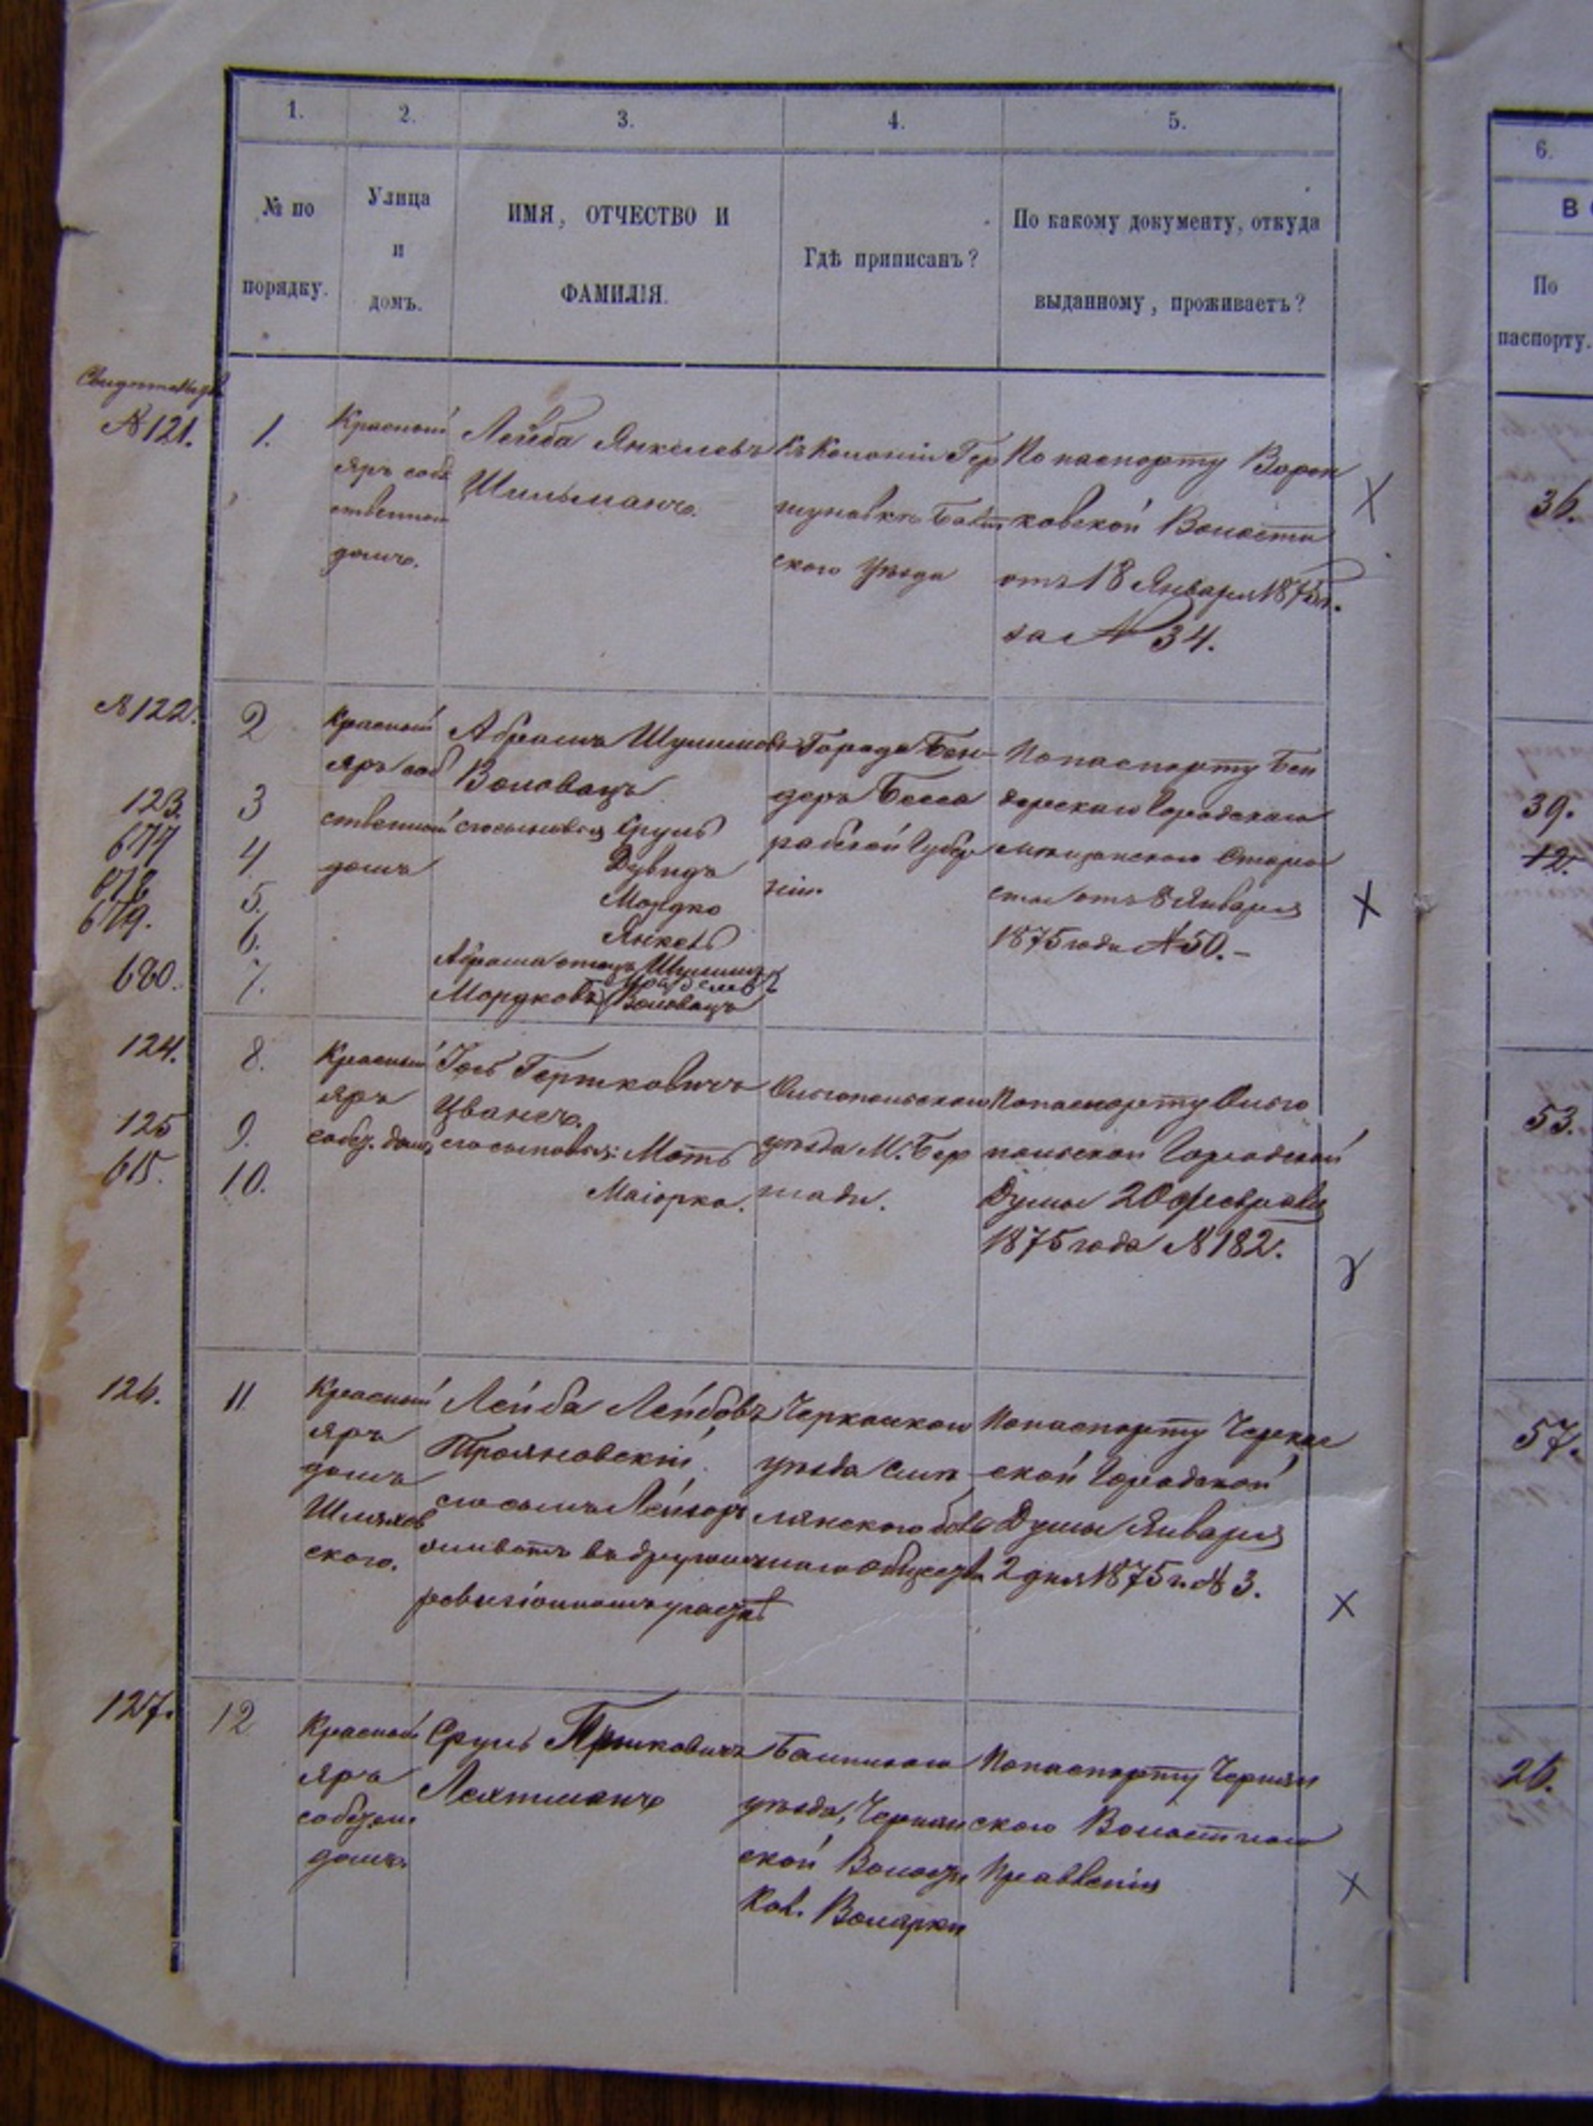 1.
2.
3.
4.
5.
№ по
порядку.
Улица
и
домъ.
ИМЯ, ОТЧЕСТВО И
ФАМИЛІЯ.
Гдѣ приписанъ?
По какому документу, откуда
выданному, проживаетъ?
№ 121.
1.
Красный
яръ собс
ственный
домъ.
Лейба Янкелевъ
Шильманъ.
Къ Колоніи Гер
шуновкѣ Балт
ского Уѣзда
По паспорту Ворон
ковской Волости
отъ 18 Января 1875 г.
за № 34.
№ 122.
123.
677
678
679.
680.
2
3
4
5.
6.
7.
Красный
яръ соб
ственный
домъ
Абрамъ Шулимовъ
Воловацъ
его сыновья Сруль
Дувидъ
Мордко
Янкель
Абрама отецъ Шулимъ
Мордковъ Воловацъ
Города Бен-
деръ Бесса
рабской Губер
ніи.
По паспорту Бен
дерскаго Городскаго
мѣщанскаго Старо
сты отъ 8 Января
1875 года № 50.-
124.
125
615.
8.
9.
10.
Красный
яръ
собст. домъ
Іось Гершковичъ
Цванегъ.
его сыновья: Мотъ
Маіорко.
Ольгопольскаго
уѣзда М. Бер
шади.
По паспорту Ольго
польской Городской
Думы 20 Февраля
1875 года № 182.
126.
11
Красный
яръ
домъ
Шмулов
ского.
Лейба Лейбовъ
Трояновскій
его сынъ Лейзоръ
ревизіонномъ участкѣ
Черкаскаго
уѣзда Смѣ
лянскаго
общества
По паспорту Черкас
ской Городской
Думы Января
2 дня 1875 г. № 3.
127.
12
Красный
яръ
собствен
домъ.
Сруль Гершковичъ
Лехтманъ
Балтскаго
уѣзда, Чернян
ской Волости
Кол. Волярки
По паспорту Чернян
скаго Волостнаго
Правленія
6.
По
паспорту.
36.
39.
12.
53.
57.
26.